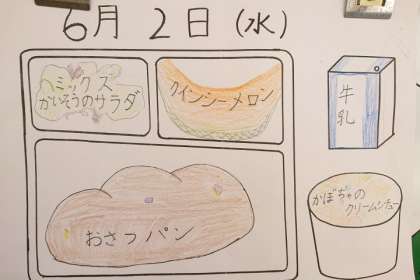 6月2日(水)
ミックス
かいそうのサラダ
クインシーメロン
牛
乳
おさつパン
かぼちゃの
クリームシチュー